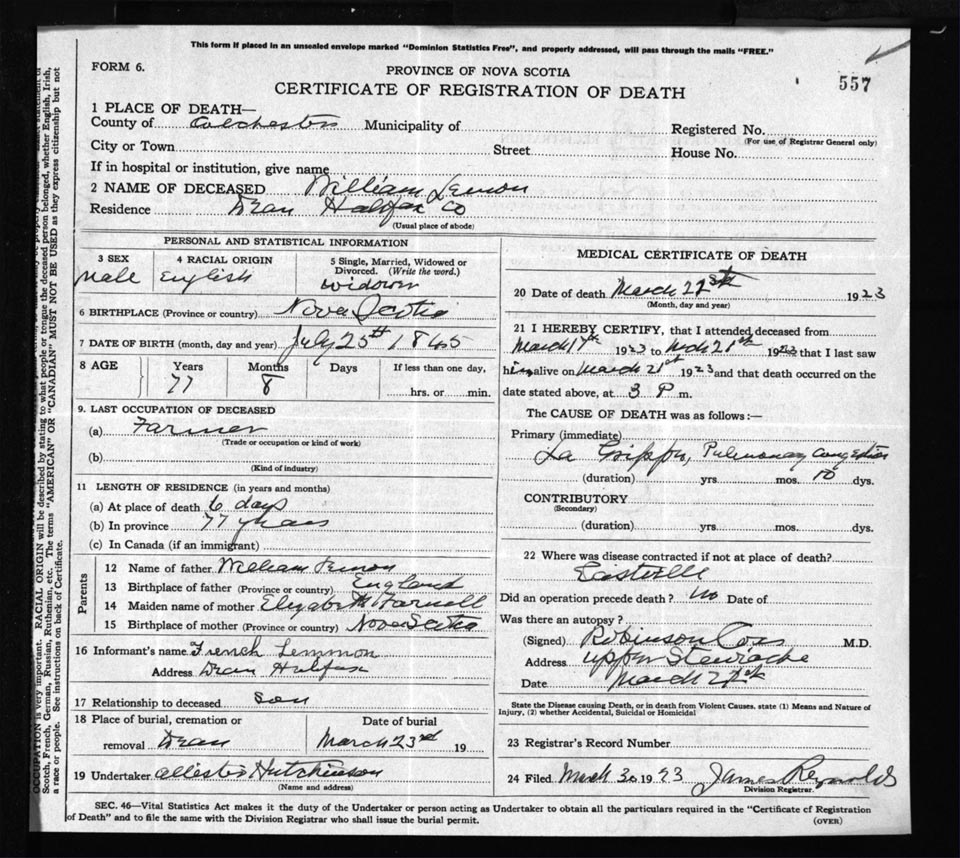 This form if placed in an unsealed envelope marked "Dominion Statistics Free", and properly addressed, will pass through the mails "FREE."
FORM 6.
PROVINCE OF NOVA SCOTIA
557
CERTIFICATE OF REGISTRATION OF DEATH
1 PLACE OF DEATH—
County of Colchester Municipality of
Registered No.
(For use of Registrar General only)
City or Town Street House No.
If in hospital or institution, give name
2 NAME OF DECEASED William Lemon
Residence Dean Halifax Co
(Usual place of abode)
PERSONAL AND STATISTICAL INFORMATION
3 SEX 4 RACIAL ORIGIN 5 Single, Married, Widowed or Divorced. (Write the word.)
Male English widower
6 BIRTHPLACE (Province or country) Nova Scotia
7 DATE OF BIRTH (month, day and year) July 25th 1845
8 AGE Years Months Days If less than one day,
77 8 hrs. or min.
9. LAST OCCUPATION OF DECEASED
(a) Farmer
(Trade or occupation or kind of work)
(b)
(Kind of industry)
11 LENGTH OF RESIDENCE (in years and months)
(a) At place of death 6 days
(b) In province 77 years
(c) In Canada (if an immigrant)
Parents
12 Name of father William Lemon
13 Birthplace of father (Province or country) England
14 Maiden name of mother Elizabeth Farnell
15 Birthplace of mother (Province or country) Nova Scotia
16 Informant's name French Lemmon
Address Dean Halifax
17 Relationship to deceased Son
18 Place of burial, cremation or Date of burial
removal Dean March 23rd 19
19 Undertaker Allester Hutchinson
(Name and address)
MEDICAL CERTIFICATE OF DEATH
20 Date of death March 21st 1923
(Month, day and year)
21 I HEREBY CERTIFY, that I attended deceased from
March 17th 1923 to Mch 21st 1923 that I last saw
him alive on March 21st 1923 and that death occurred on the
date stated above, at 3 P m.
The CAUSE OF DEATH was as follows :—
Primary (immediate)
La Grippe, Pulmonary Congestion
(duration) yrs. mos. 10 dys.
CONTRIBUTORY
(Secondary)
(duration) yrs. mos. dys.
22 Where was disease contracted if not at place of death?
Eastville
Did an operation precede death? no Date of
Was there an autopsy?
(Signed) Robinson Cox M.D.
Address Upper Stewiacke
Date March 21st
State the Disease causing Death, or in death from Violent Causes. state (1) Means and Nature of Injury, (2) whether Accidental, Suicidal or Homicidal
23 Registrar's Record Number
24 Filed March 30 1923 James Reynolds
Division Registrar.
SEC. 46—Vital Statistics Act makes it the duty of the Undertaker or person acting as Undertaker to obtain all the particulars required in the "Certificate of Registration
of Death" and to file the same with the Division Registrar who shall issue the burial permit.
(OVER)
OCCUPATION is very important. RACIAL ORIGIN will be described by stating to what people or tongue the deceased person belonged, whether English, Irish,
Scotch, French, German, Russian, Ruthenian, etc. The terms "AMERICAN" OR "CANADIAN" MUST NOT BE USED as they express citizenship but not
a race or people. See instructions on back of Certificate.